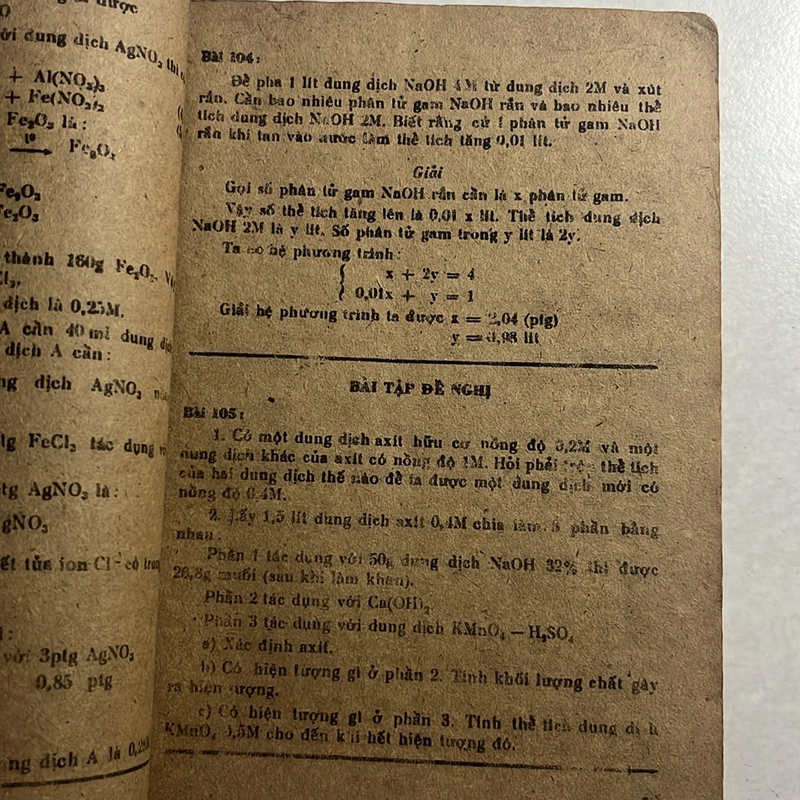 ới dung dịch AgNO₃ thì
+ Al(NO₃)₃
+ Fe(NO₃)₂
Fe₂O₃ là :
t⁰
Fe₂O₃
Fe₂O₃
thành 160g Fe₂O₃.
dịch là 0,25M.
A cần 40 ml dung
dịch A cần :
dịch AgNO₃
FeCl₂ tác dụng
AgNO₃ là :
gNO₃
ết tủa ion Cl⁻ có trong
với 3ptg AgNO₃
0,85 ptg
ng dịch A là
Bài 104 :
Để pha 1 lít dung dịch NaOH 4M từ dung dịch 2M và xút
rắn. Cần bao nhiêu phân tử gam NaOH rắn và bao nhiêu thể
tích dung dịch NaOH 2M. Biết rằng cứ 1 phân tử gam NaOH
rắn khi tan vào nước làm thể tích tăng 0,01 lít.
Giải
Gọi số phân tử gam NaOH rắn cần là x phân tử gam.
Vậy số thể tích tăng lên là 0,01 x lít. Thể tích dung dịch
NaOH 2M là y lít. Số phân tử gam trong y lít là 2y.
Ta có hệ phương trình :
x + 2y = 4
0,01x + y = 1
Giải hệ phương trình ta được x = 2,04 (ptg)
y = 0,98 lít
BÀI TẬP ĐỀ NGHỊ
Bài 105 :
1. Có một dung dịch axit hữu cơ nồng độ 0,2M và một
dung dịch khác của axit có nồng độ 1M. Hỏi phải trộn thể tích
của hai dung dịch thế nào để ta được một dung dịch mới có
nồng độ 0,4M.
2. Lấy 1,5 lít dung dịch axit 0,4M chia làm 3 phần bằng
nhau :
Phần 1 tác dụng với 50g dung dịch NaOH 32% thì được
muối (sau khi làm khan).
Phần 2 tác dụng với Ca(OH)₂
Phần 3 tác dụng với dung dịch KMnO₄ – H₂SO₄
a) Xác định axit.
b) Có hiện tượng gì ở phần 2. Tính khối lượng chất gây
ra hiện tượng.
c) Có hiện tượng gì ở phần 3. Tính thể tích dung dịch
KMnO₄ 0,5M cho đến khi hết hiện tượng đó.